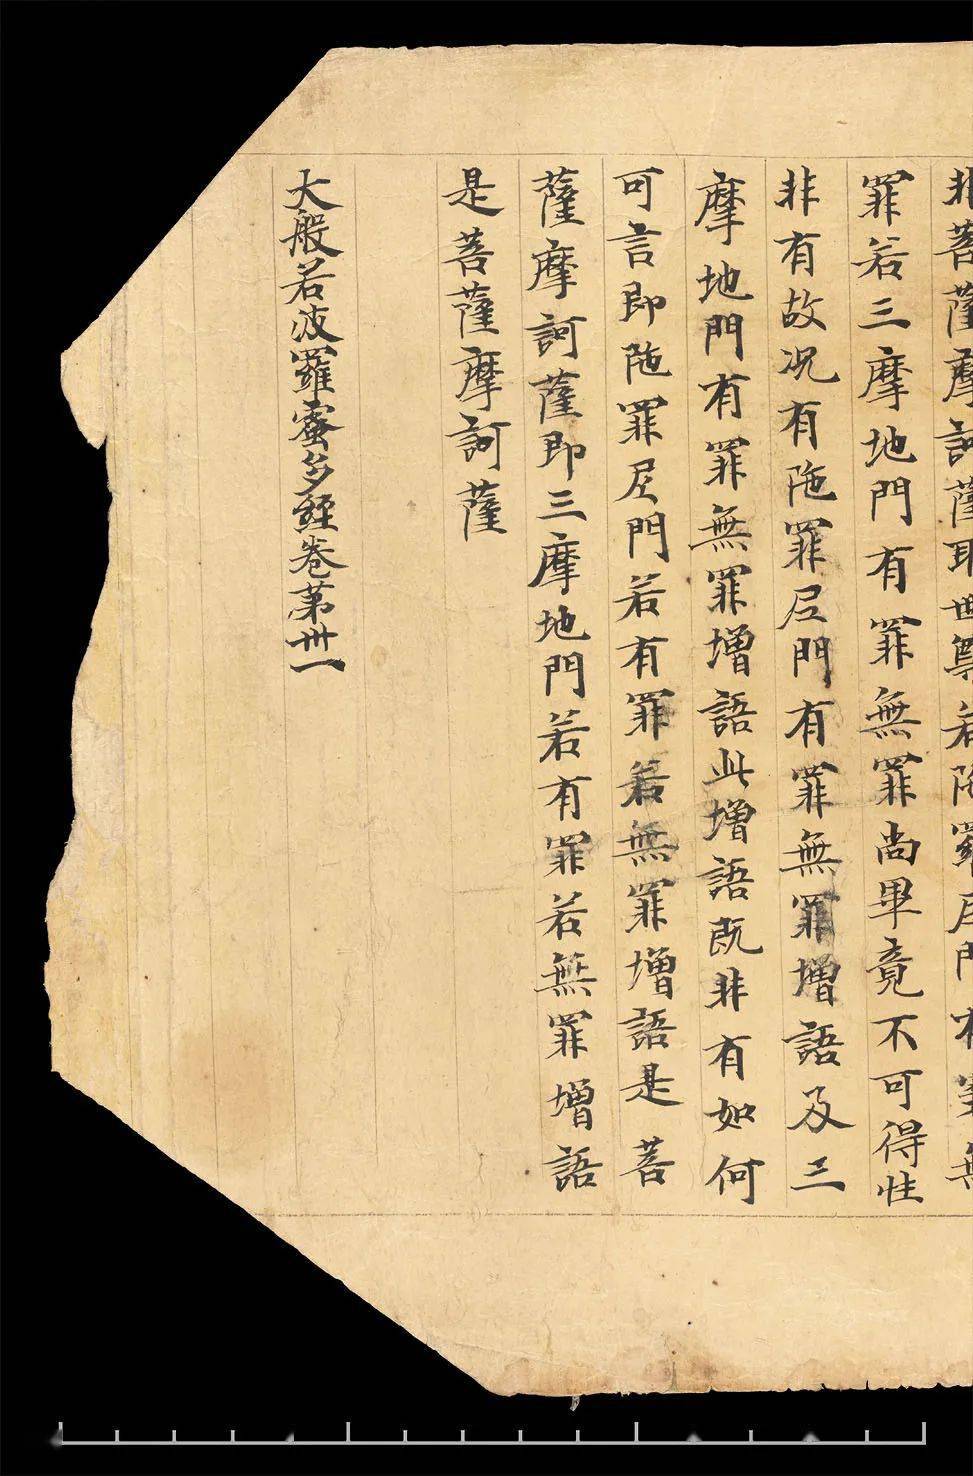 非菩薩摩訶薩耶世尊若陁羅尼門有罪無
罪若三摩地門有罪無罪尚畢竟不可得性
非有故况有陁罪尼門有罪無罪增語及三
摩地門有罪無罪增語此增語既非有如何
可言即陁罪尼門若有罪若無罪增語是菩
薩摩訶薩即三摩地門若有罪若無罪增語
是菩薩摩訶薩
大般若波羅蜜多經卷第卅一